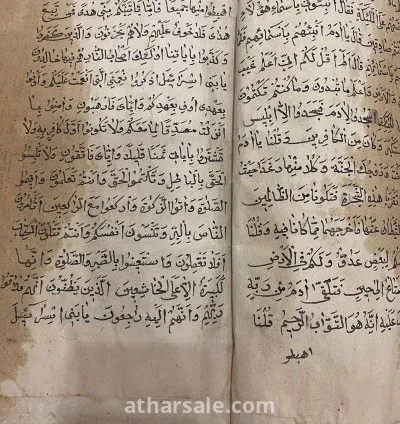 الملئكة فقال انبئوني باسماء هؤلاء
قال يا ادم انبئهم باسمائهم
قال الم اقل لكم اني اعلم غيب
والارض واعلم ما تبدون وما كنتم تكتمون
اسجدوا لادم فسجدوا الا ابليس
وكان من الكافرين وقلنا يا ادم
انت وزوجك الجنة وكلا منها رغدا حيث
تقربا هذه الشجرة فتكونا من الظالمين
الشيطان عنها فاخرجهما مما كانا فيه وقلنا
لبعض عدو ولكم في الارض
ومتاع الى حين فتلقى ادم من ربه
عليه انه هو التواب الرحيم قلنا
اهبطو
اهبطوا منها جميعا فاما ياتينكم مني هدى فمن تبع
هداي فلا خوف عليهم ولا هم يحزنون والذين كفروا
وكذبوا باياتنا اولئك اصحاب النار هم فيها خالدون
يا بني اسرائيل اذكروا نعمتي التي انعمت عليكم واوفوا
بعهدي اوف بعهدكم واياي فارهبون وامنوا بما
انزلت مصدقا لما معكم ولا تكونوا اول كافر به ولا
تشتروا باياتي ثمنا قليلا واياي فاتقون ولا تلبسوا
الحق بالباطل وتكتموا الحق وانتم تعلمون واقيموا
الصلوة واتوا الزكوة واركعوا مع الراكعين اتامرون
الناس بالبر وتنسون انفسكم وانتم تتلون الكتاب
افلا تعقلون واستعينوا بالصبر والصلوة وانها
لكبيرة الا على الخاشعين الذين يظنون انهم ملاقوا
ربهم وانهم اليه راجعون يا بني اسرائيل
atharsale.com